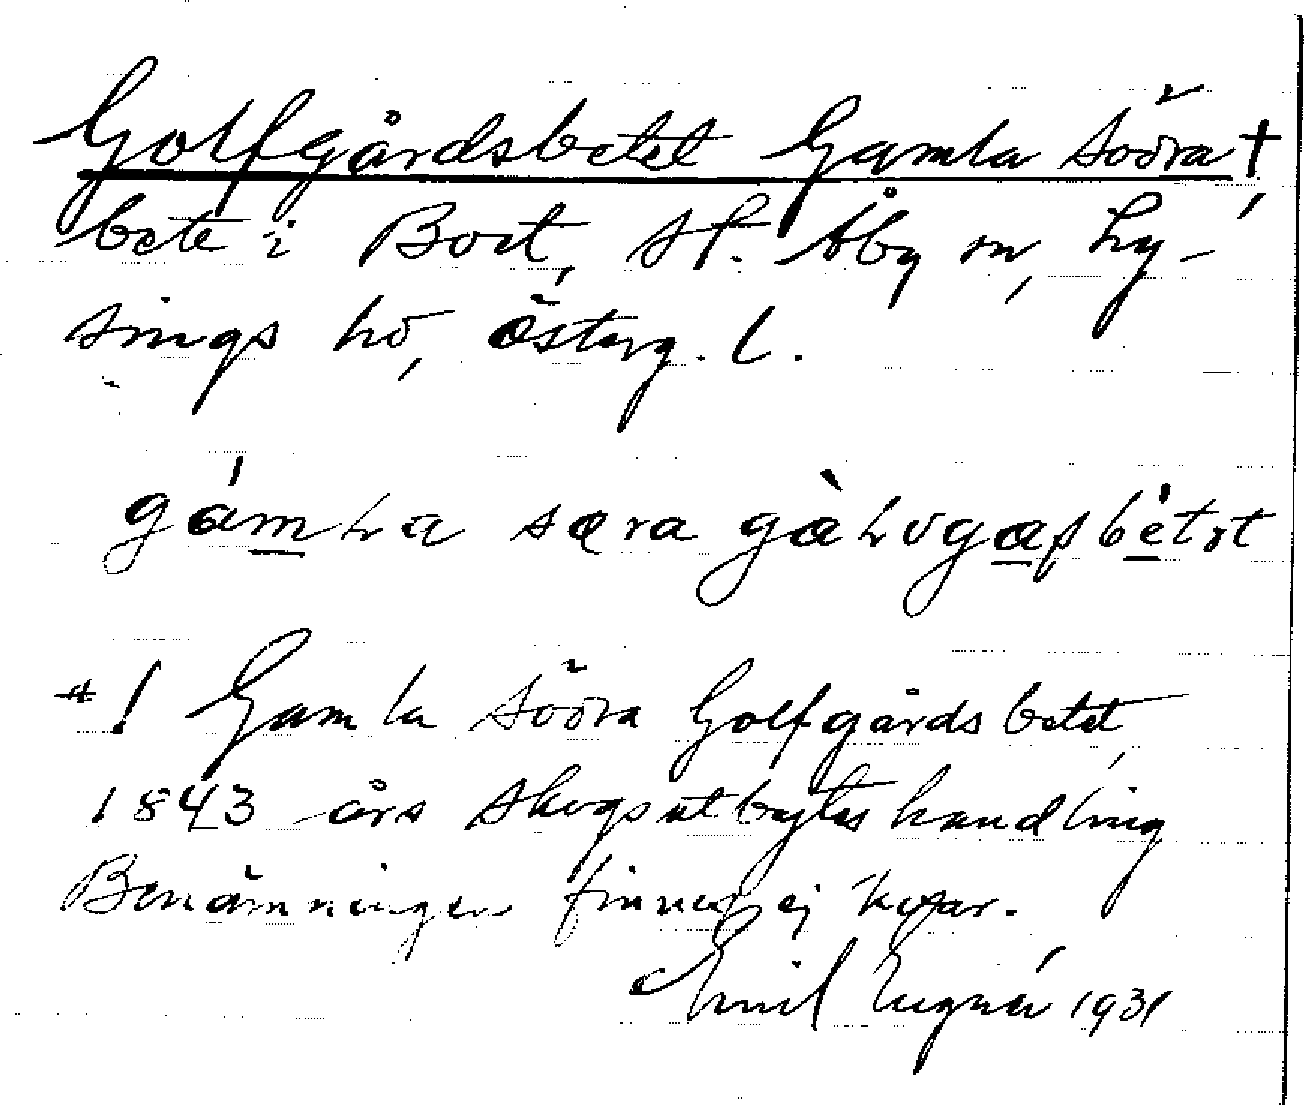 Golfgårdsbetet Gamla Södra †,
bete i Bort, St. Åby sn, Ly-
sings hd, Österg. l.
gámla særa gàlvgaṣbètət
*/ Gamla Södra Golfgårdsbetet,
1843 års skogsutbyteshandling
Benämningen finnes ej kvar.
Emil 1931